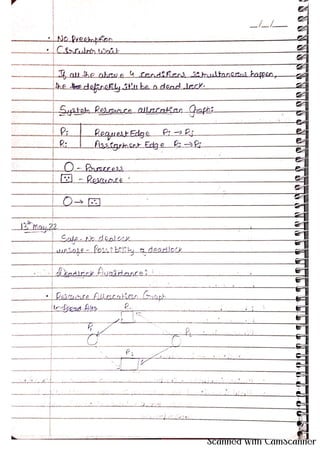 __/__/__
• No Preemption
• Circular Wait
If all the above 4 conditions simultaneous happen,
the definitely it'll be a dead lock.
System Resource allocation Graph:
Pi Request Edge Pi → Rj
Ri Assignment Edge Ri → Pj
O - Process
- Resource
13th May, 22
Safe - No dealock
unsafe - Possibility of deadlock
Deadlock Avoidance:
• Resource Allocation Graph
R1
P1
R2
Scanned with CamScanner